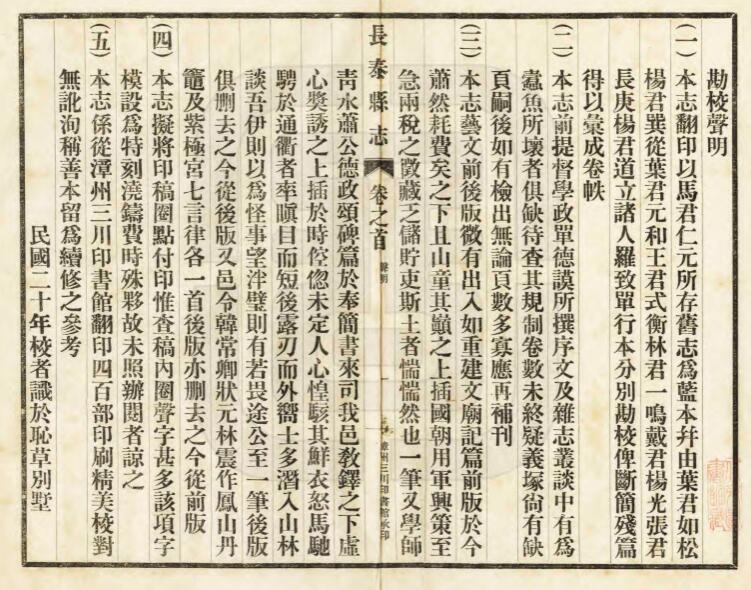 勘校聲明
(一)本志翻印以馬君仁元所存舊志爲藍本幷由葉君如松
楊君巽從葉君元和王君式衡林君一鳴戴君楊光張君
長庚楊君道立諸人羅致單行本分別勘校俾斷簡殘篇
得以彙成卷帙
(二)本志前提督學政單德謨所撰序文及雜志叢談中有爲
蠹魚所壞者俱缺待查其規制卷數未終疑義塚尙有缺
頁嗣後如有檢出無論頁數多寡應再補刊
(三)本志藝文前後版微有出入如重建文廟記篇前版於今
蕭然耗費矣之下且山童其巔之上插國朝用軍興策至
急兩稅之徵藏乏儲貯吏斯土者惴惴然也一筆又學師
長泰縣志
卷之首
聲明
一
漳州三川印書館承印
靑水蕭公德政頌碑篇於奉簡書來司我邑敎鐸之下虛
心奬誘之上插於時倥偬未定人心惶駭其鮮衣怒馬馳
騁於通衢者率瞋目而短後露刃而外嚮士多潛入山林
談吾伊則以爲怪事望泮璧則有若畏途公至一筆後版
俱删去之今從後版又邑令韓常卿狀元林震作鳳山丹
竈及紫極宮七言律各一首後版亦删去之今從前版
(四)本志擬將印稿圈點付印惟查稿內圈聲字甚多該項字
模設爲特刻澆鑄費時殊夥故未照辦閱者諒之
(五)本志係從漳州三川印書館翻印四百部印刷精美校對
無訛洵稱善本留爲續修之參考
民國二十年校者識於恥草別墅